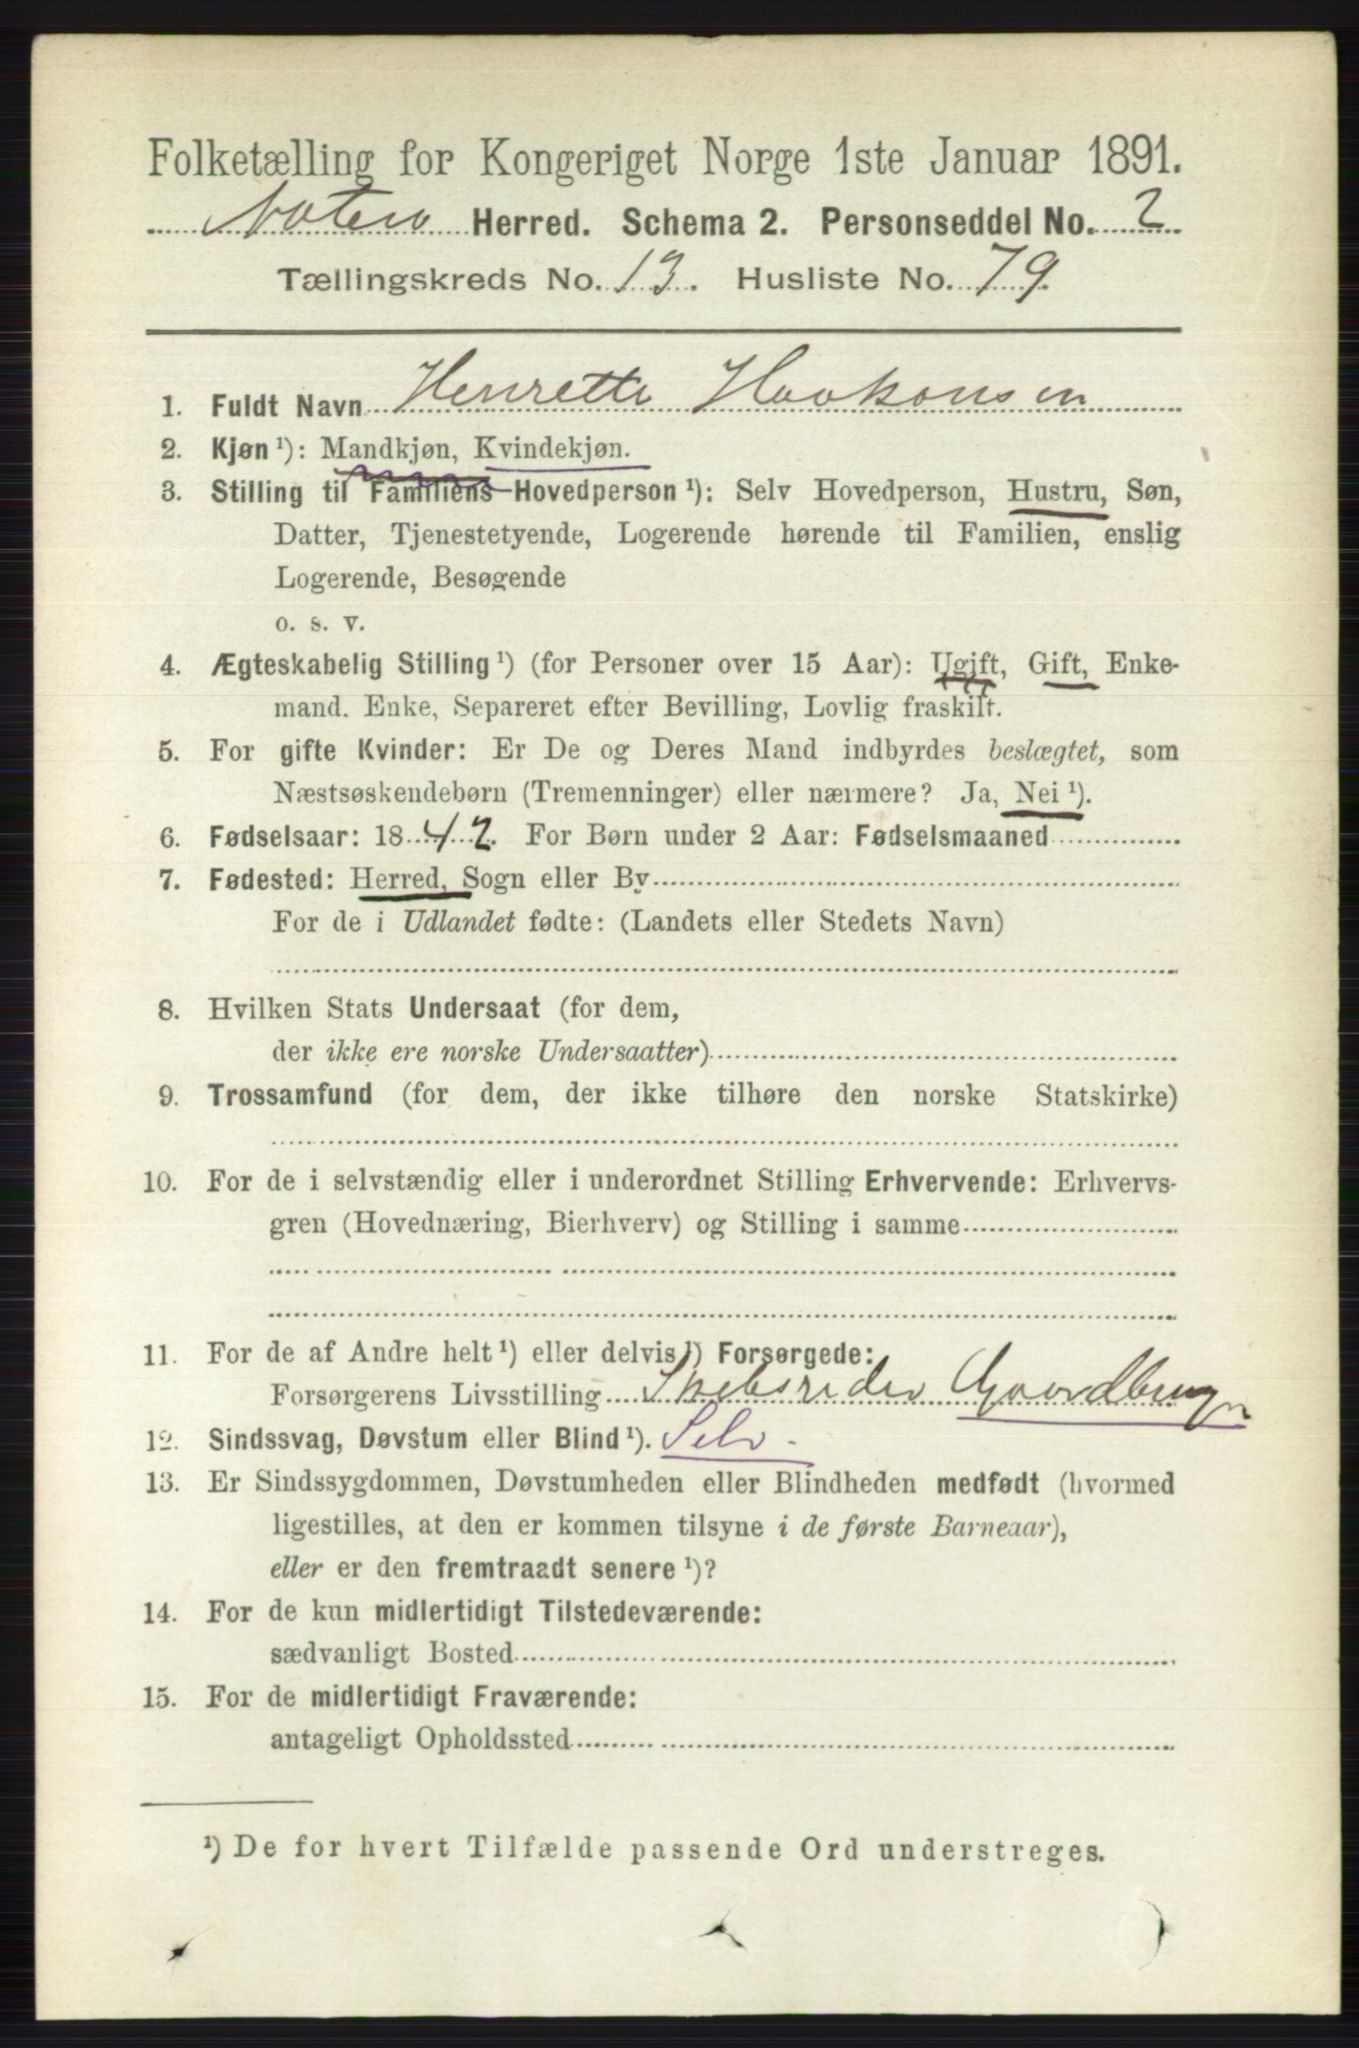 Folketælling for Kongeriget Norge 1ste Januar 1891.
Nøterø Herred. Schema 2. Personseddel No. 2
Tællingskreds No. 13. Husliste No. 79.
1. Fuldt Navn Henrette Haakonsen
2. Kjøn ¹): Mandkjøn, Kvindekjøn.
3. Stilling til Familiens Hovedperson ¹): Selv Hovedperson, Hustru, Søn,
Datter, Tjenestetyende, Logerende hørende til Familien, enslig
Logerende, Besøgende
o. s. v.
4. Ægteskabelig Stilling ¹) (for Personer over 15 Aar): Ugift, Gift, Enke-
mand. Enke, Separeret efter Bevilling, Lovlig fraskilt.
5. For gifte Kvinder: Er De og Deres Mand indbyrdes beslægtet, som
Næstsøskendebørn (Tremenninger) eller nærmere? Ja, Nei ¹).
6. Fødselsaar: 1842. For Børn under 2 Aar: Fødselsmaaned
7. Fødested: Herred, Sogn eller By
For de i Udlandet fødte: (Landets eller Stedets Navn)
8. Hvilken Stats Undersaat (for dem,
der ikke ere norske Undersaatter)
9. Trossamfund (for dem, der ikke tilhøre den norske Statskirke)
10. For de i selvstændig eller i underordnet Stilling Erhvervende: Erhvervs-
gren (Hovednæring, Bierhverv) og Stilling i samme
11. For de af Andre helt ¹) eller delvis ¹) Forsørgede:
Forsørgerens Livsstilling Skebsreder Gaardbruger
12. Sindssvag, Døvstum eller Blind ¹). Selv.
13. Er Sindssygdommen, Døvstumheden eller Blindheden medfødt (hvormed
ligestilles, at den er kommen tilsyne i de første Barneaar),
eller er den fremtraadt senere ¹)?
14. For de kun midlertidigt Tilstedeværende:
sædvanligt Bosted
15. For de midlertidigt Fraværende:
antageligt Opholdssted
¹) De for hvert Tilfælde passende Ord understreges.